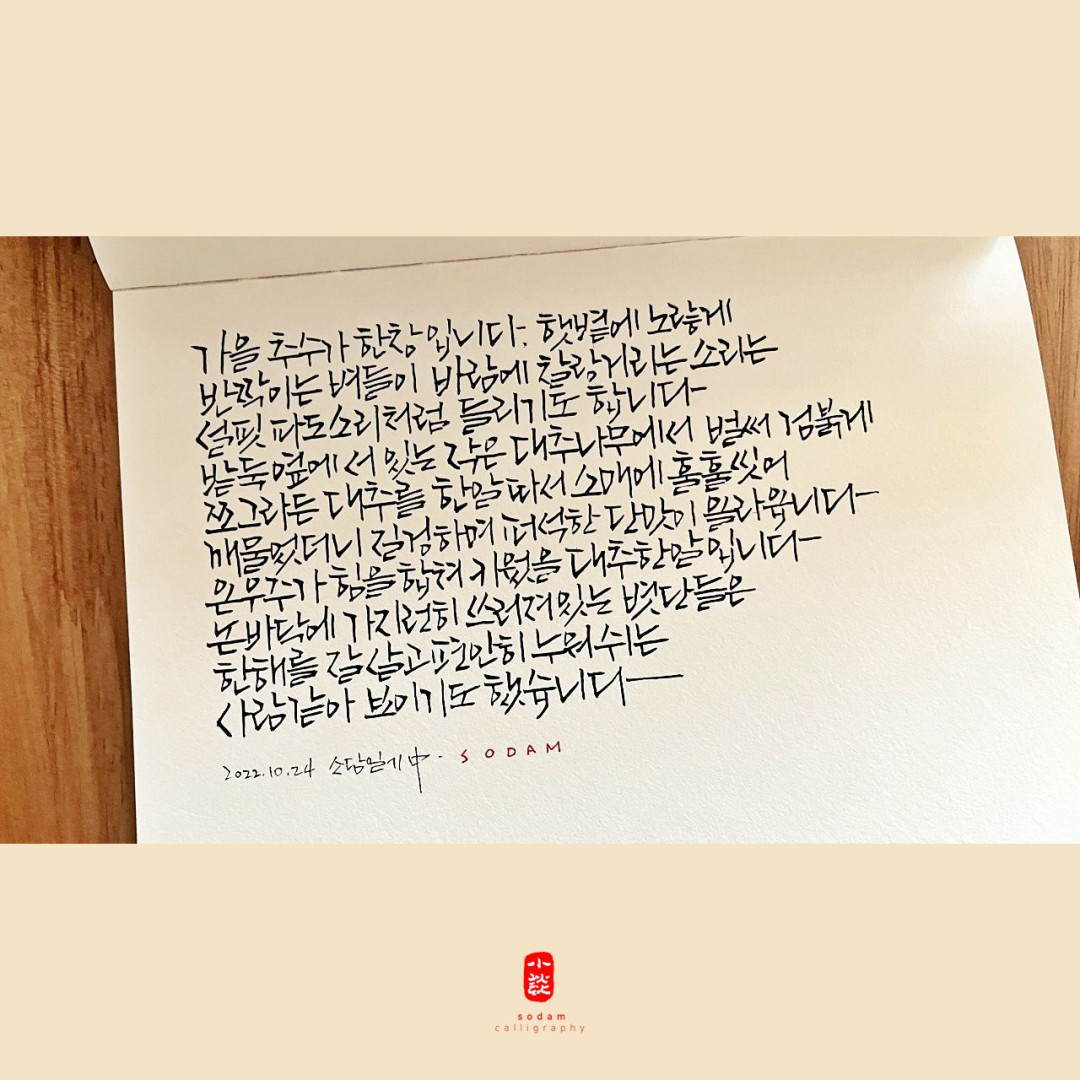 가을 추수가 한창입니다. 햇볕에 노랗게
반짝이는 벼들이 바람에 찰랑거리는 소리는
설핏 파도소리처럼 들리기도 합니다
밭둑옆에 서 있는 작은 대추나무에서 벌써 검붉게
쪼그라든 대추를 한알 따서 소매에 훌훌 씻어
깨물었더니 질겅하며 퍼석한 단맛이 올라옵니다
온우주가 힘을 합쳐 키웠을 대추한알입니다
논바닥에 가지런히 쓰러져있는 볏단들은
한해를 잘 살고 편안히 누워 쉬는
사람같아 보이기도 했습니다
2022.10.24 소담일기中. SODAM
小談
sodam
calligraphy